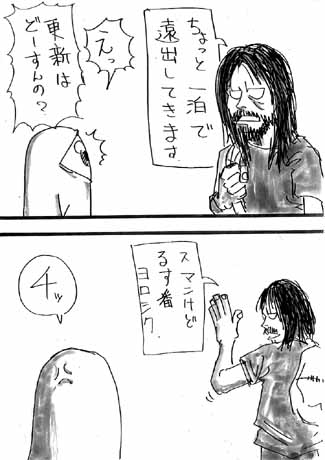 ちょっと一泊で
遠出してきます
えっ
更新は
どーすんの？
スマンけど
るす番
ヨロシク.
チッ